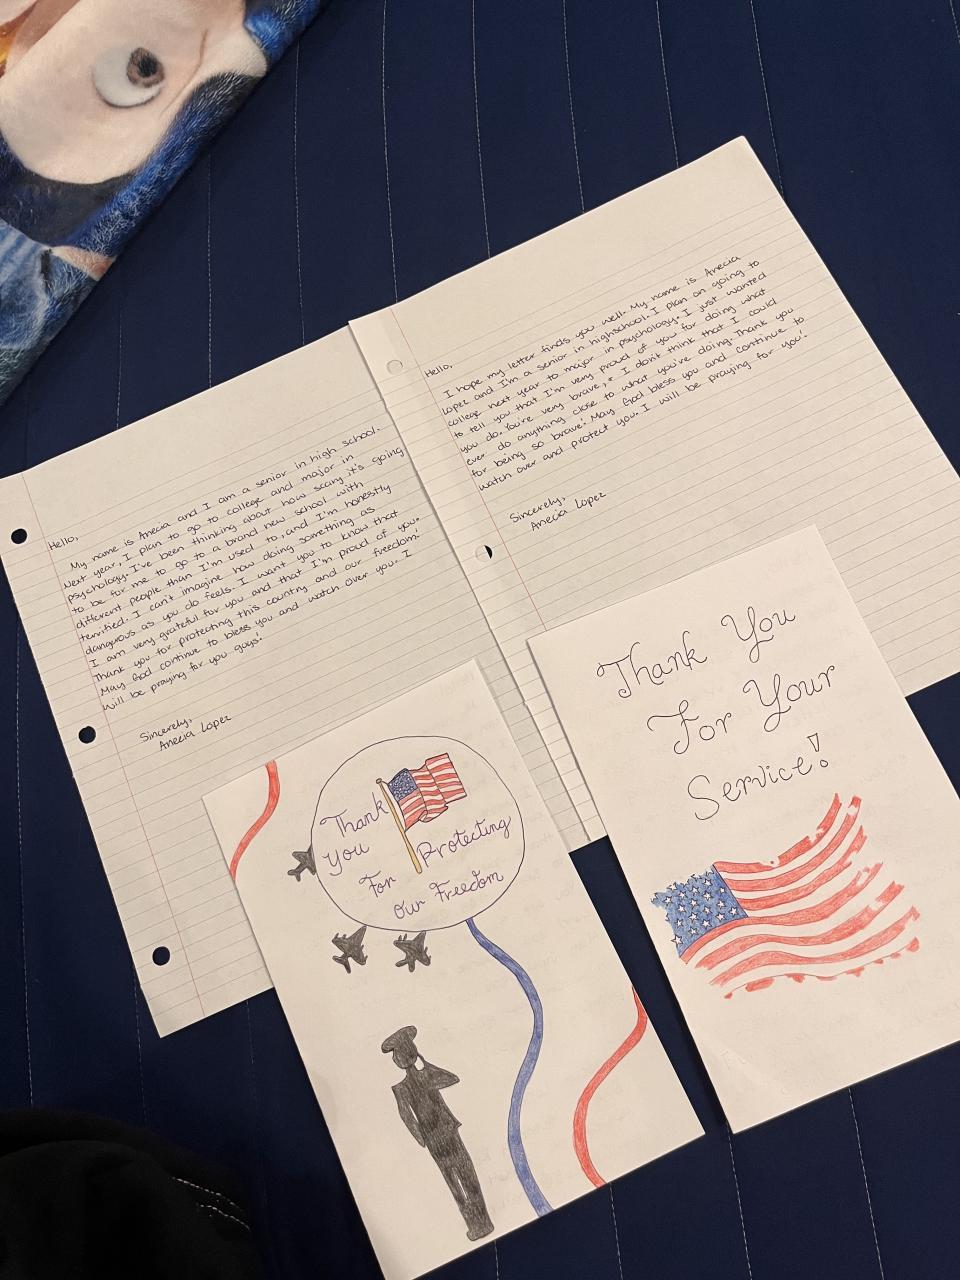 Hello,
My name is Anecia and I am a senior in high school.
Next year, I plan to go to college and major in
psychology. I've been thinking about how scary it's going
to be for me to go to a brand new school with
different people than I'm used to, and I'm honestly
terrified. I can't imagine how doing something as
dangerous as you do feels. I want you to know that
I am very grateful for you and that I'm proud of you.
Thank you for protecting this country and our freedom!
May God continue to bless you and watch over you. I
will be praying for you guys!
Sincerely,
Anecia Lopez
Hello,
I hope my letter finds you well. My name is Anecia
Lopez and I'm a senior in highschool. I plan on going to
college next year to major in psychology. I just wanted
to tell you that I'm very proud of you for doing what
you do. You're very brave, & I don't think that I could
ever do anything close to what you're doing. Thank you
for being so brave! May God bless you and continue to
watch over and protect you. I will be praying for you!
Sincerely,
Anecia Lopez
Thank
You
For
Protecting
Our Freedom
Thank You
For Your
Service!